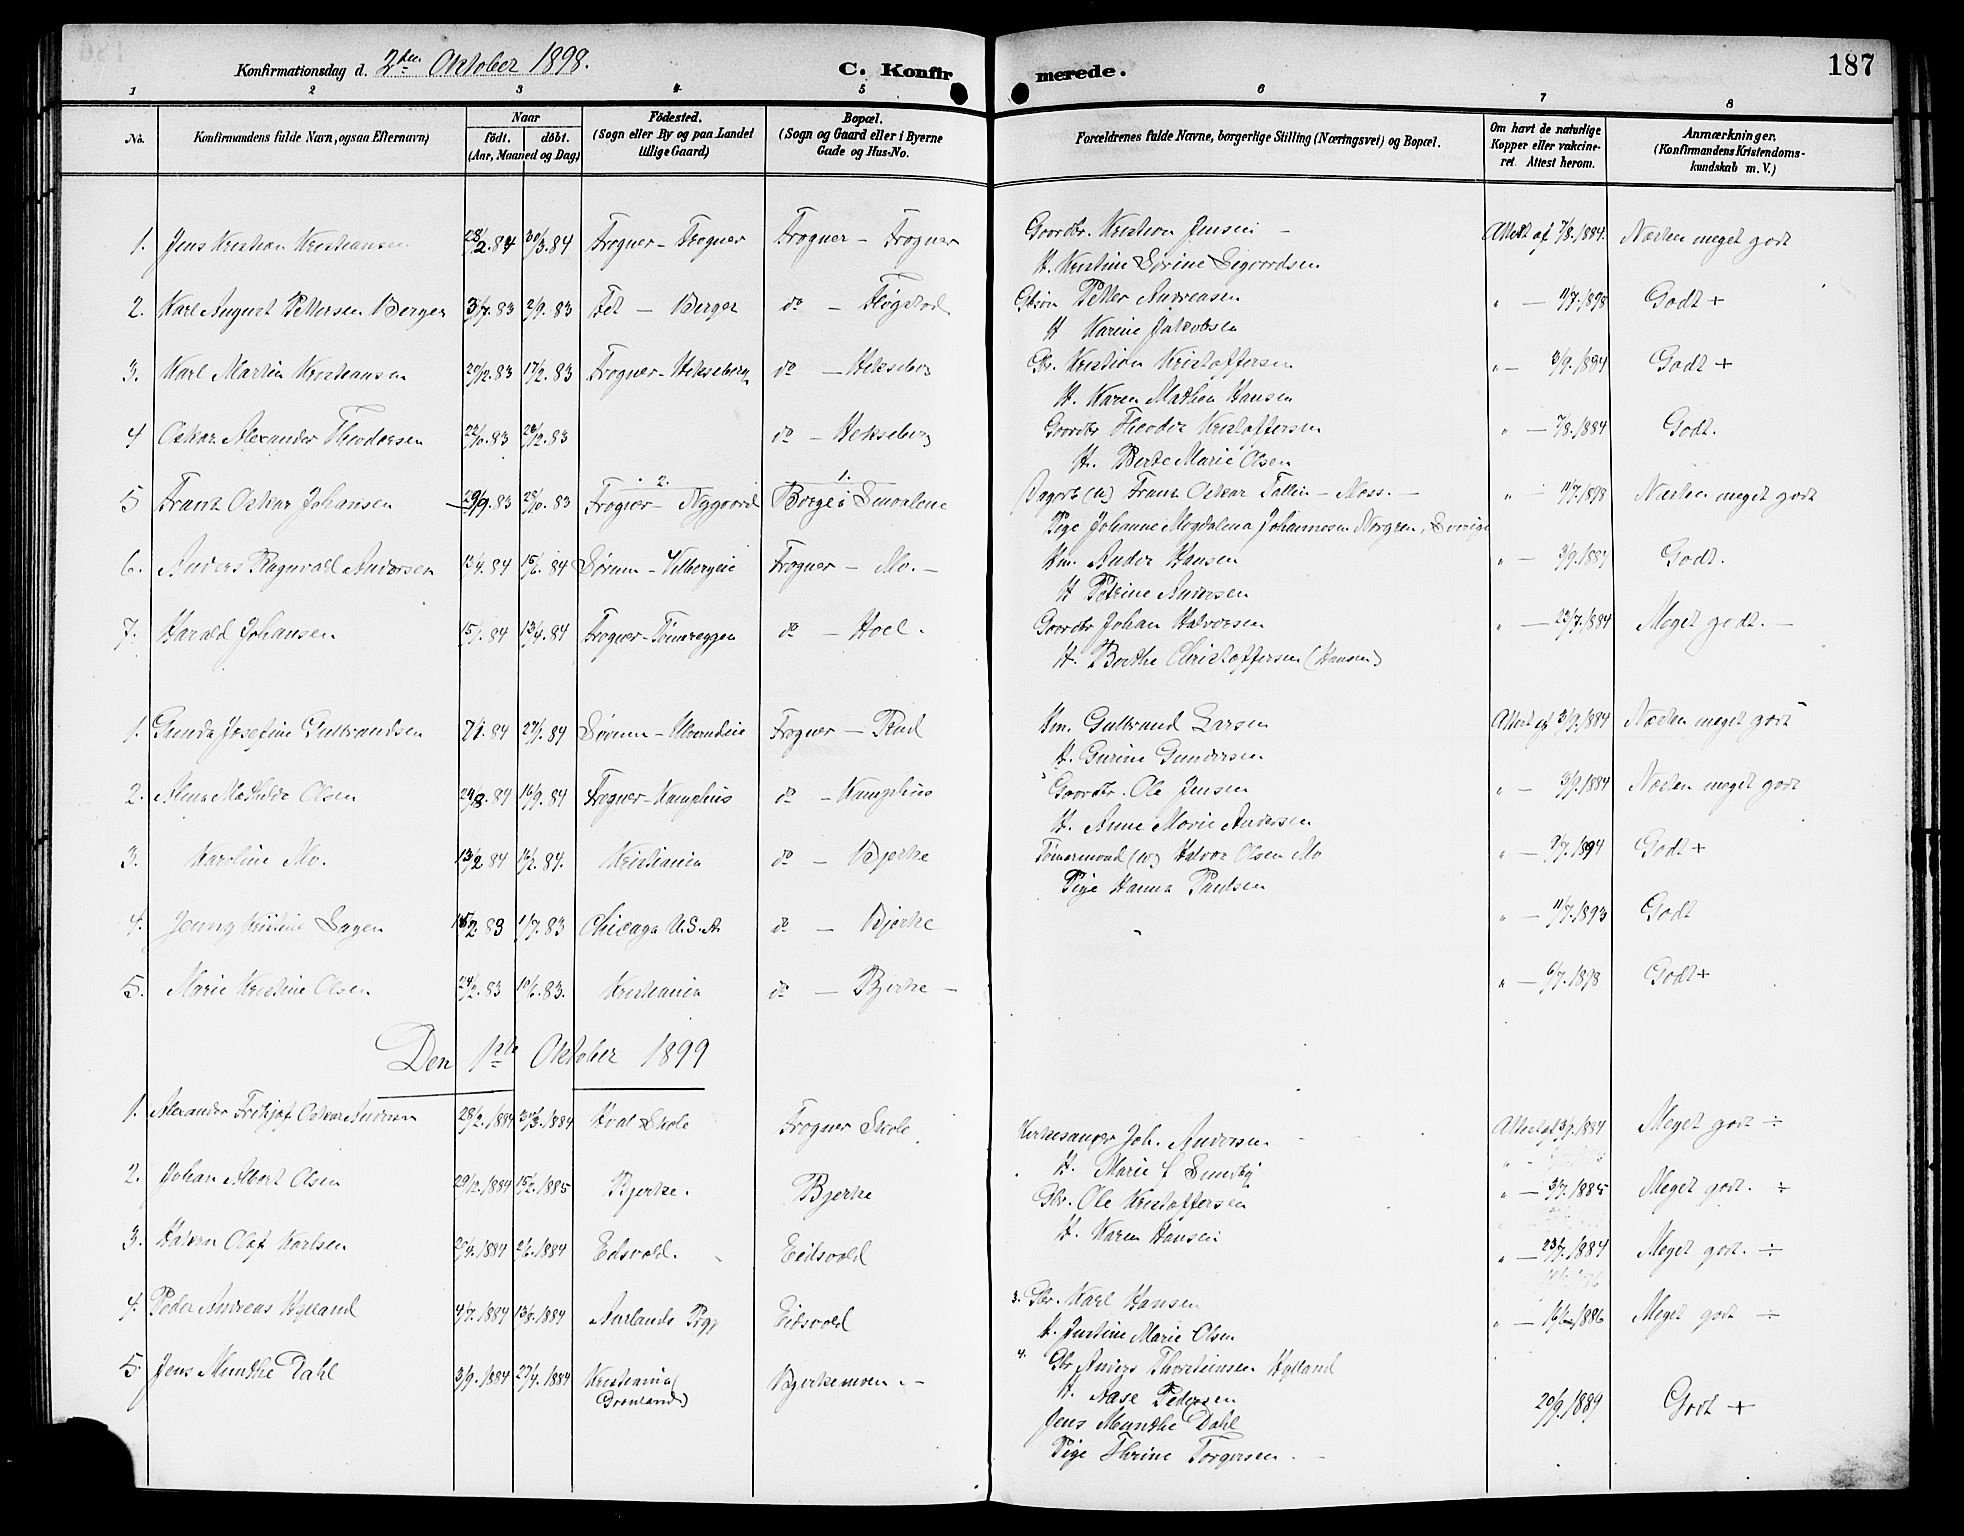 Konfirmationsdag d. 2den Oktober 1898.
C. Konfirmerede.
187
1 2 3 4 5 6 7 8
No.
Konfirmandens fulde Navn, ogsaa Efternavn)
Naar
født. døbt.
(Aar, Maaned og Dag)
Fødested.
(Sogn eller By og paa Landet
tillige Gaard)
Bopæl.
(Sogn og Gaard eller i Byerne
Gade og Hus-No.
Forældrenes fulde Navne, borgerlige Stilling (Næringsvei) og Bopæl.
Om havt de naturlige
Kopper eller vakcine-
ret Attest herom.
Anmærkninger.
(Konfirmandens Kristendoms-
kundskab m. V.)
1. Jens Kristian Kristiansen 28/2.84 30/3.84 Frogner - Frogner Frogner - Frogner Gaardbr. Kristian Jensen - Attest af 7/8.1884. Næsten meget godt
H. Kristine Sørine Sigvardsen
2. Karl August Pettersen Berger 3/7.83 2/9.83 Fet - Berger do - Flogstad Petter Andreasen " - 11/7.1898 Godt +
H Karine Jakobsen
3. Karl Martin Kristiansen 20/12.83 17/2.83 Frogner - Hekseberg do - Hekseberg Gbr. Kristian Kristoffersen " - 3/9.1894 Godt +
H. Karen Mathea Hansen
4 Oskar Alexander Theodorsen 22/10.83 26/12.83 do - Hekseberg Gaardbr Theodor Kristoffersen " - 7/8.1884 Godt.
H. Berte Marie Olsen
5 Franz Oskar Johansen 29/9.83 28/10.83 2. Frogner - Nygaard 1. Borge i Smaalene Franz Oskar Tallin - Moss. - " - 11/7.1898 Næsten meget godt
Pige Johanne Magdalena Johannesen Norgren, Sverige
6. Anders Ragnvald Andersen 13/4.84 15/6.84 Sørum - Vilbergeie Frogner - Mo. - Hm. Anders Hansen " - 3/9.1884 Godt.
H Petrine Andersen
7. Harald Johansen 15/1.84 13/4.84 Frogner - Tømteeggen do - Hoel. Gaardbr Johan Halvorsen " - 23/7.1884 Meget godt. -
H. Berthe Christoffersen (Hansen)
1. Gunda Josefine Gulbrandsen 7/1.84 27/1.84 Sørum - Frogner - Rud Hm. Gulbrand Larsen Attest af 3/9.1884 Næsten meget godt
H. Gurine Gundersen
2. Alma Mathilde Olsen 24/8.84 14/9.84 Frogner - Kamphus do - Kamphus Gaardbr. Ole Jensen " - 3/9.1884 Næsten meget godt
H. Anne Marie Andersen
3. Karoline Mo. 13/2.84 Kristiania do - Bjerke Tømmermand Halvor Olsen Mo " - 9/7.1894 Godt +
Pige Hanna Paulsen
4. Jenny Kristine Hagen 83 1/7.83 Chicago U.S.A. do - Bjerke " - 11/7.1893 Godt
5. Marie Kristine Olsen 24/2.83 10/6.83. Kristiania do - Bjerke - " - 6/7.1898 Godt +
Den 1ste Oktober 1899
1. Alexander Fritjof Oskar Andersen 28/2.1884 30/3.1884 Hval Skole Frogner Skole Kirkesanger Joh. Andersen Attest af 3/9.1884 Meget godt ÷
H. Marie f. Sundby
2. Johan Albert Olsen 29/12.1884 15/2.1885 Bjerke. Bjerke Gbr. Ole Kristoffersen " - 3/7.1885 Meget godt. ÷
H. Karen Hansen
3. Halvon Olaf Karlsen 20/4.1884 2/6.1884 Eidsvold. Eidsvold " - 23/7.1884 Meget godt. ÷
4. Peder Andreas Hylland 4/7.1884 13/8.1884 Aurlands Prgj Eidsvold 3. Gbr. Karl Hansen " - 16/6.1886 Meget godt ÷
H. Justine Marie Olsen
5. Jens Munthe Dahl 3/9.1884 27/4.1884 Kristiania (Grønland) Bjerkemoen. - 4. Gbr Anders Thorsteinsen Hylland
H. Aase Pedersen 20/9.1889 Godt +
Jens Munthe Dahl
Pige Thrine Torgersen. -